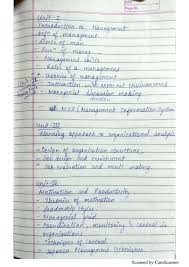 Page No.
Unit-I
Introduction to Management
- Defn of management
- levels of man.
- Funn of manag
- Management skills
- Roles of a management
* Theories of management
Unit II
- Interaction with external environment
- Managerial Decision making
- MIS (Management Information System
Unit-III
Planning approach to organisational analysis
- Design of organisation structure,
- Job design and enrichment
- Job evaluation and merit making.
Unit-IV
Motivation and Productivity
- Theories of motivation
- leadership styles
- Managerial grid
- Coordination, monitoring & control in
organisations
- Techniques of control
- Japanese Management Techniques
Scanned by CamScanner